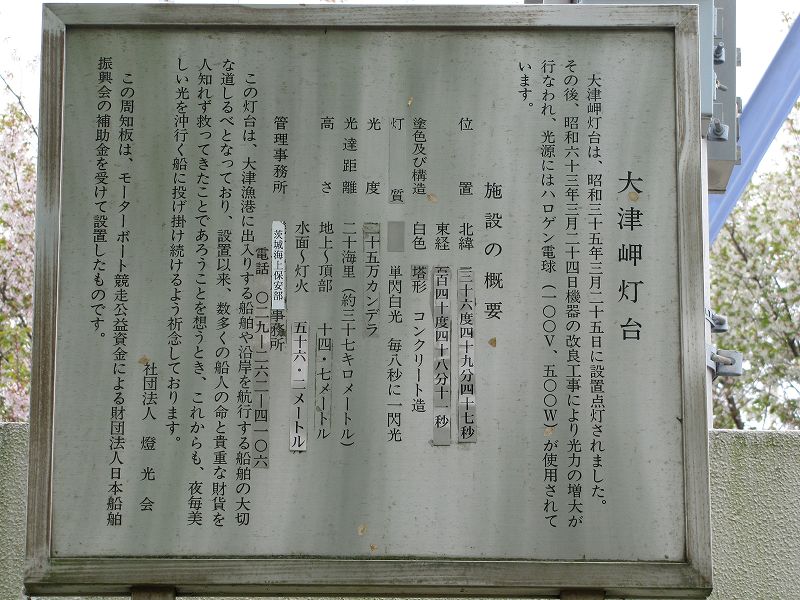 大津岬灯台
大津岬灯台は、昭和三十五年三月二十五日に設置点灯されました。
その後、昭和六十三年三月二十四日機器の改良工事により光力の増大が
行なわれ、光源にはハロゲン電球（一〇〇V、五〇〇W）が使用されて
います。
施設の概要
位置 北緯 三十六度四十九分四十七秒
東経 百四十度四十八分十一秒
塗色及び構造 白色 塔形 コンクリート造
灯質 単閃白光 毎八秒に一閃光
光度 二十五万カンデラ
光達距離 二十海里（約三十七キロメートル）
高さ 地上〜頂部 十四・七メートル
水面〜灯火 五十六・二メートル
管理事務所 茨城海上保安部 事務所
電話 〇二九ー二六二ー四一〇六
この灯台は、大津漁港に出入りする船舶や沿岸を航行する船舶の大切
な道しるべとなっており、設置以来、数多くの船人の命と貴重な財貨を
人知れず救ってきたことであろうことを想うとき、これからも、夜毎美
しい光を沖行く船に投げ掛け続けるよう祈念しております。
社団法人 燈光会
この周知板は、モーターボート競走公益資金による財団法人日本船舶
振興会の補助金を受けて設置したものです。